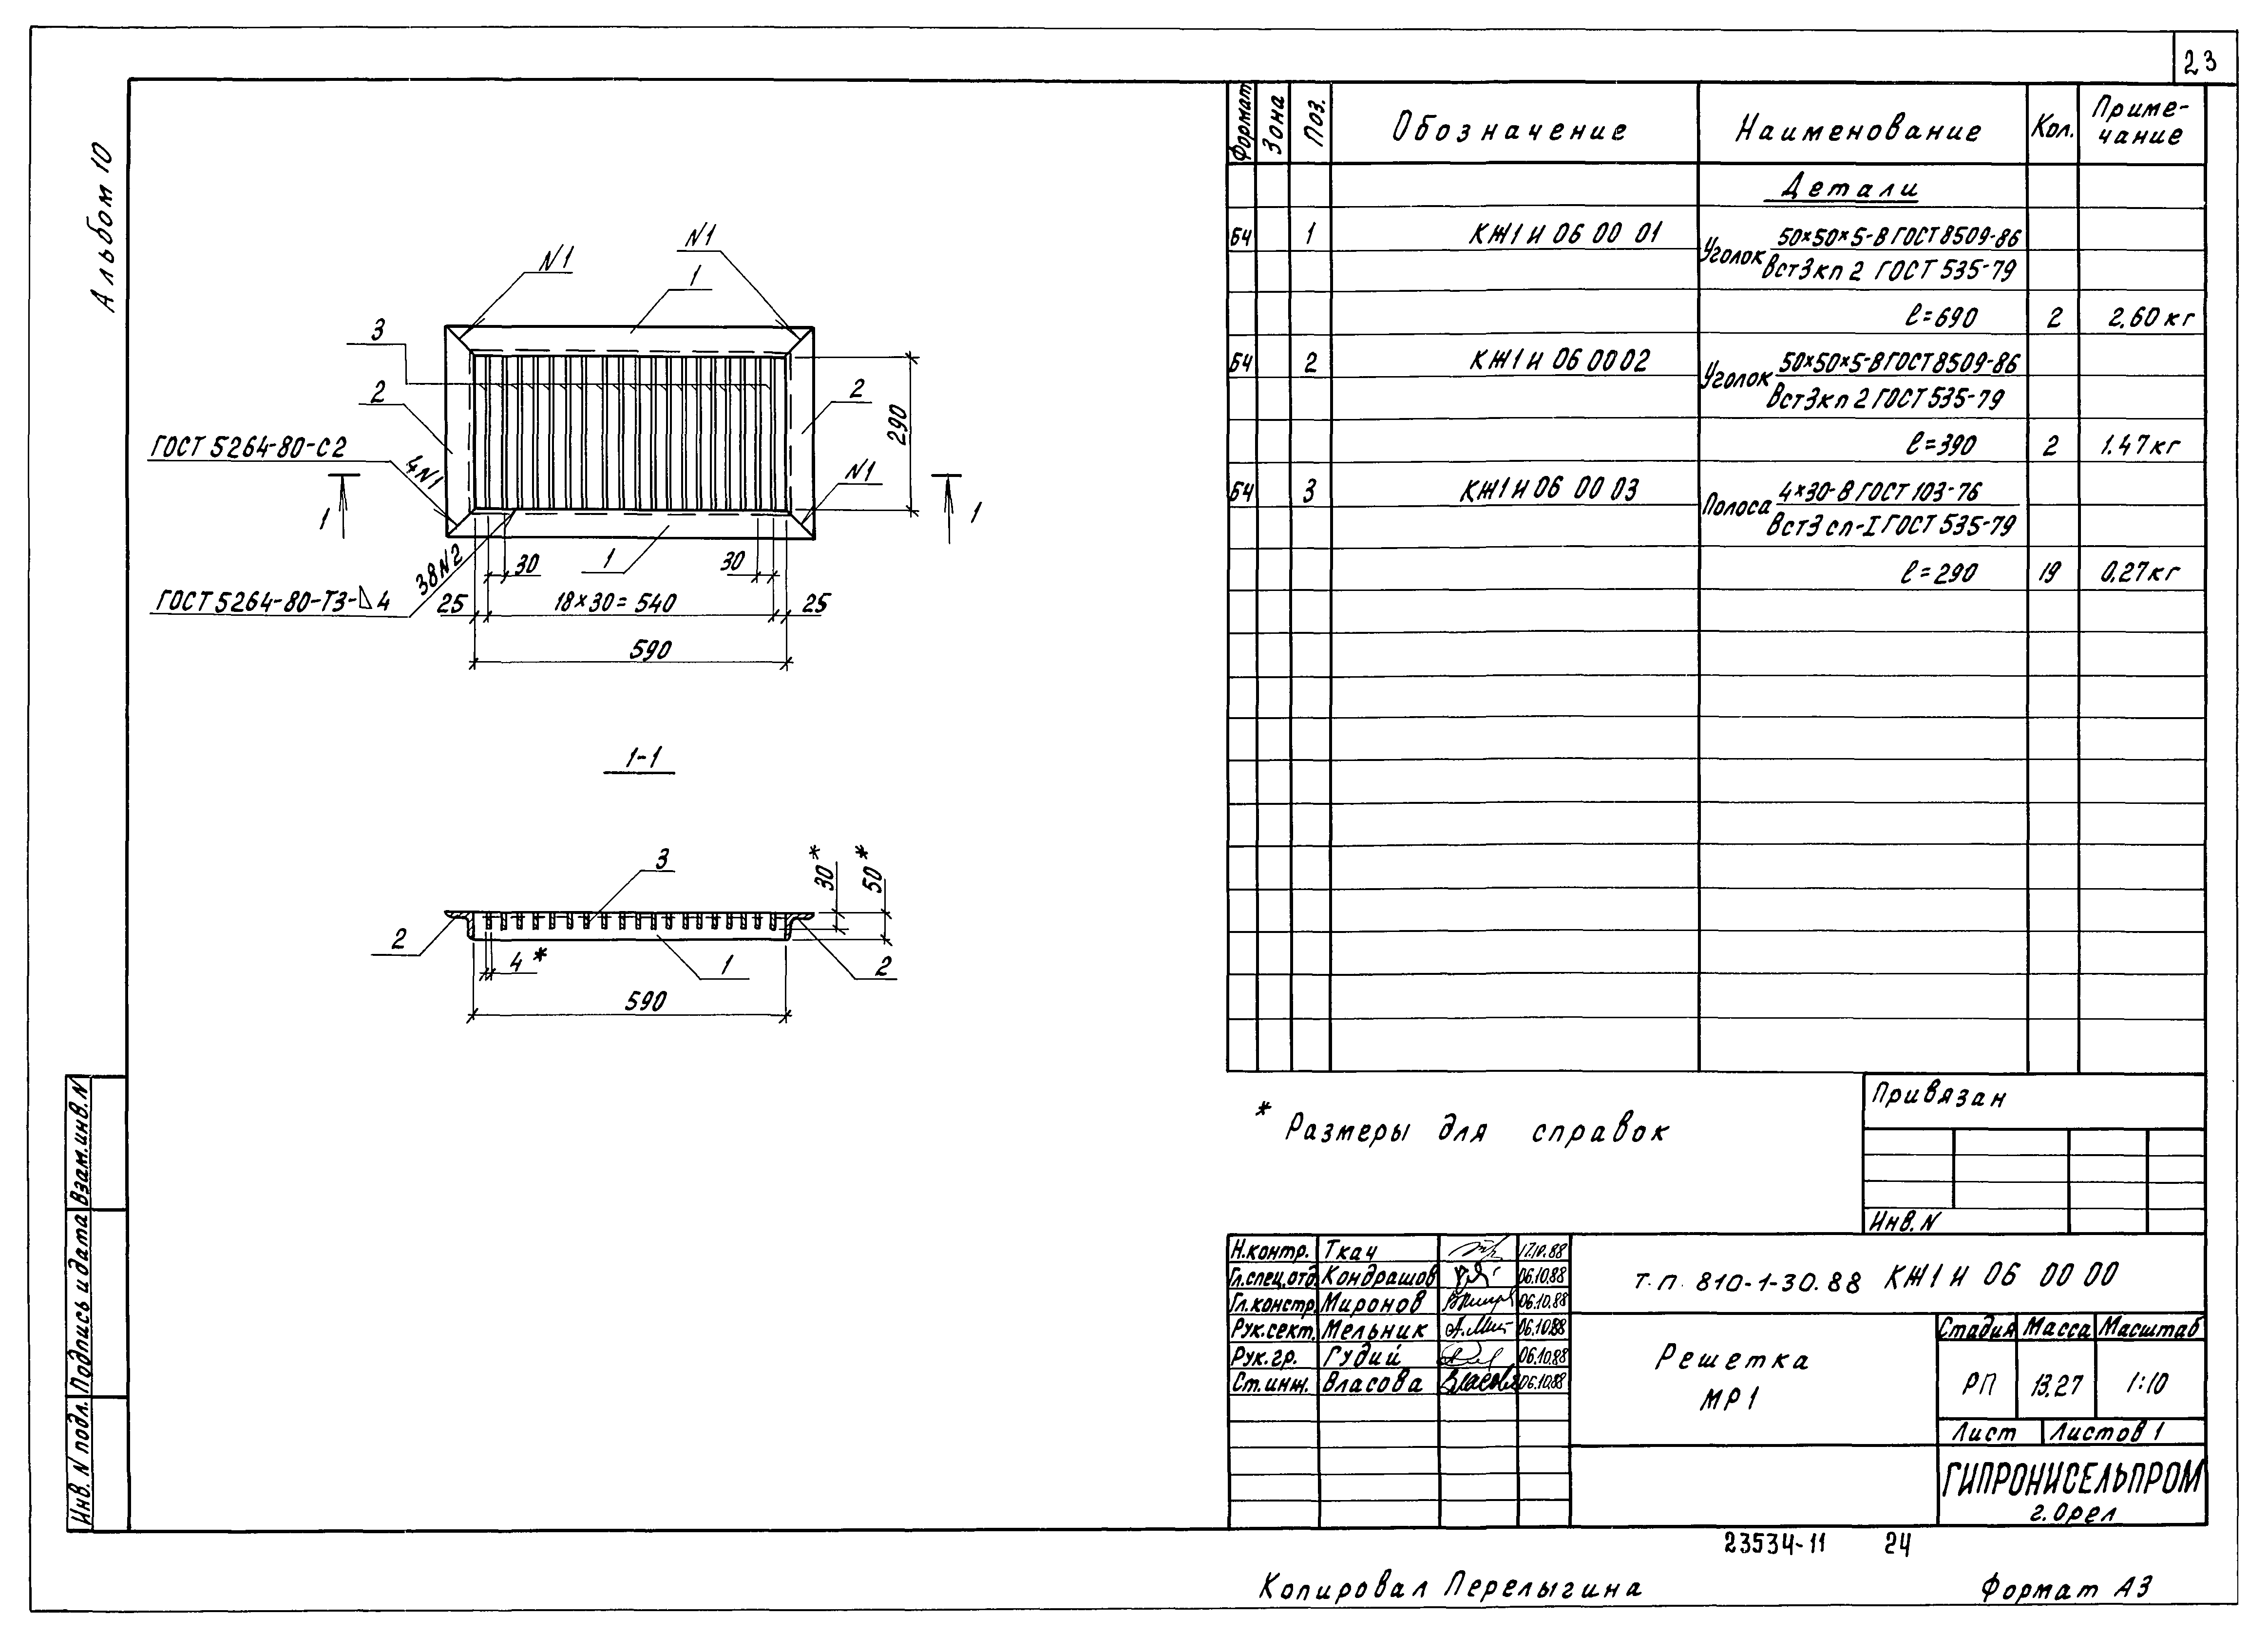 23
Альбом 10
Формат
Зона
Поз.
Обозначение
Наименование
Кол.
Приме-
чание
Детали
БЧ 1 КЖ1И 06 00 01 Уголок 50×50×5-В ГОСТ 8509-86
Вст3кп 2 ГОСТ 535-79
ℓ=690 2 2,60 кг
БЧ 2 КЖ1И 06 00 02 Уголок 50×50×5-В ГОСТ 8509-86
Вст3кп 2 ГОСТ 535-79
ℓ=390 2 1.47 кг
БЧ 3 КЖ1И 06 00 03 Полоса 4×30-В ГОСТ 103-76
Вст3 сп-I ГОСТ 535-79
ℓ=290 19 0,27 кг
N1
N1
1
3
2
2
290
ГОСТ 5264-80-С2
4N1
N1
1
1
1
38N2
30
30
ГОСТ 5264-80-Т3-◺4
25
18×30=540
25
590
1-1
3
30*
50*
2
4*
1
2
590
* Размеры для справок
Привязан
Инв. N
Взам. инв. N
Подпись и дата
Инв. N подл.
Н.контр. Ткач 17.10.88
Гл.спец.отд. Кондрашов 06.10.88
Гл.констр. Миронов 06.10.88
Рук.сект. Мельник 06.10.88
Рук.гр. Гудий 06.10.88
Ст.инж. Власова 06.10.88
т.п. 810-1-30.88 КЖ1И 06 00 00
Решетка
МР1
Стадия Масса Масштаб
РП 13,27 1:10
Лист Листов 1
ГИПРОНИСЕЛЬПРОМ
г. Орел
23534-11 24
Копировал Перелыгина
Формат А3